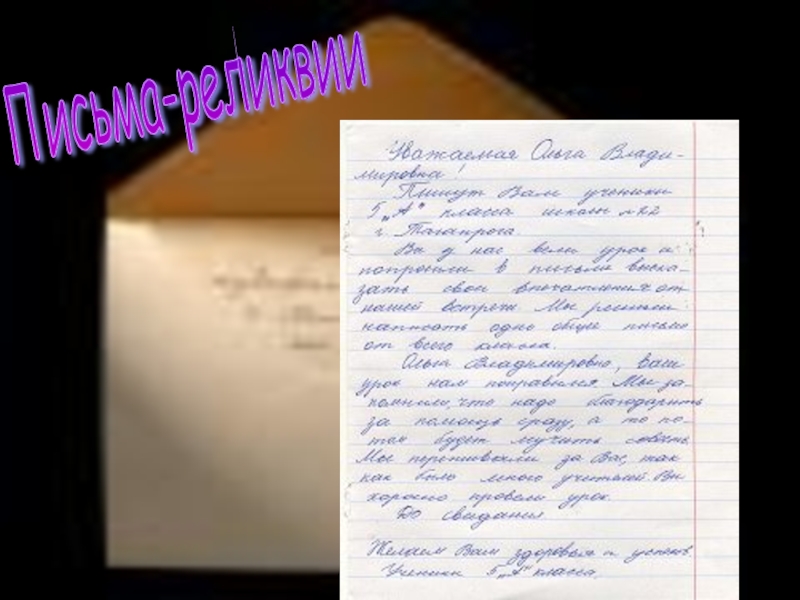 Письма-реликвии
Уважаемая Ольга Влади-
мировна!
Пишут Вам ученики
5 „А" класса школы №22
г. Таганрога.
Вы у нас вели урок и
попросили в письме выска-
зать свои впечатления от
нашей встречи. Мы решили
написать одно общее письмо
от всего класса.
Ольга Владимировна, Ваш
урок нам понравился. Мы за-
помнили, что надо благодарить
за помощь сразу, а то по-
том будет мучить совесть.
Мы переживали за Вас, так
как было много учителей. Вы
хорошо провели урок.
До свидания
Желаем Вам здоровья и успехов.
Ученики 5 „А" класса.